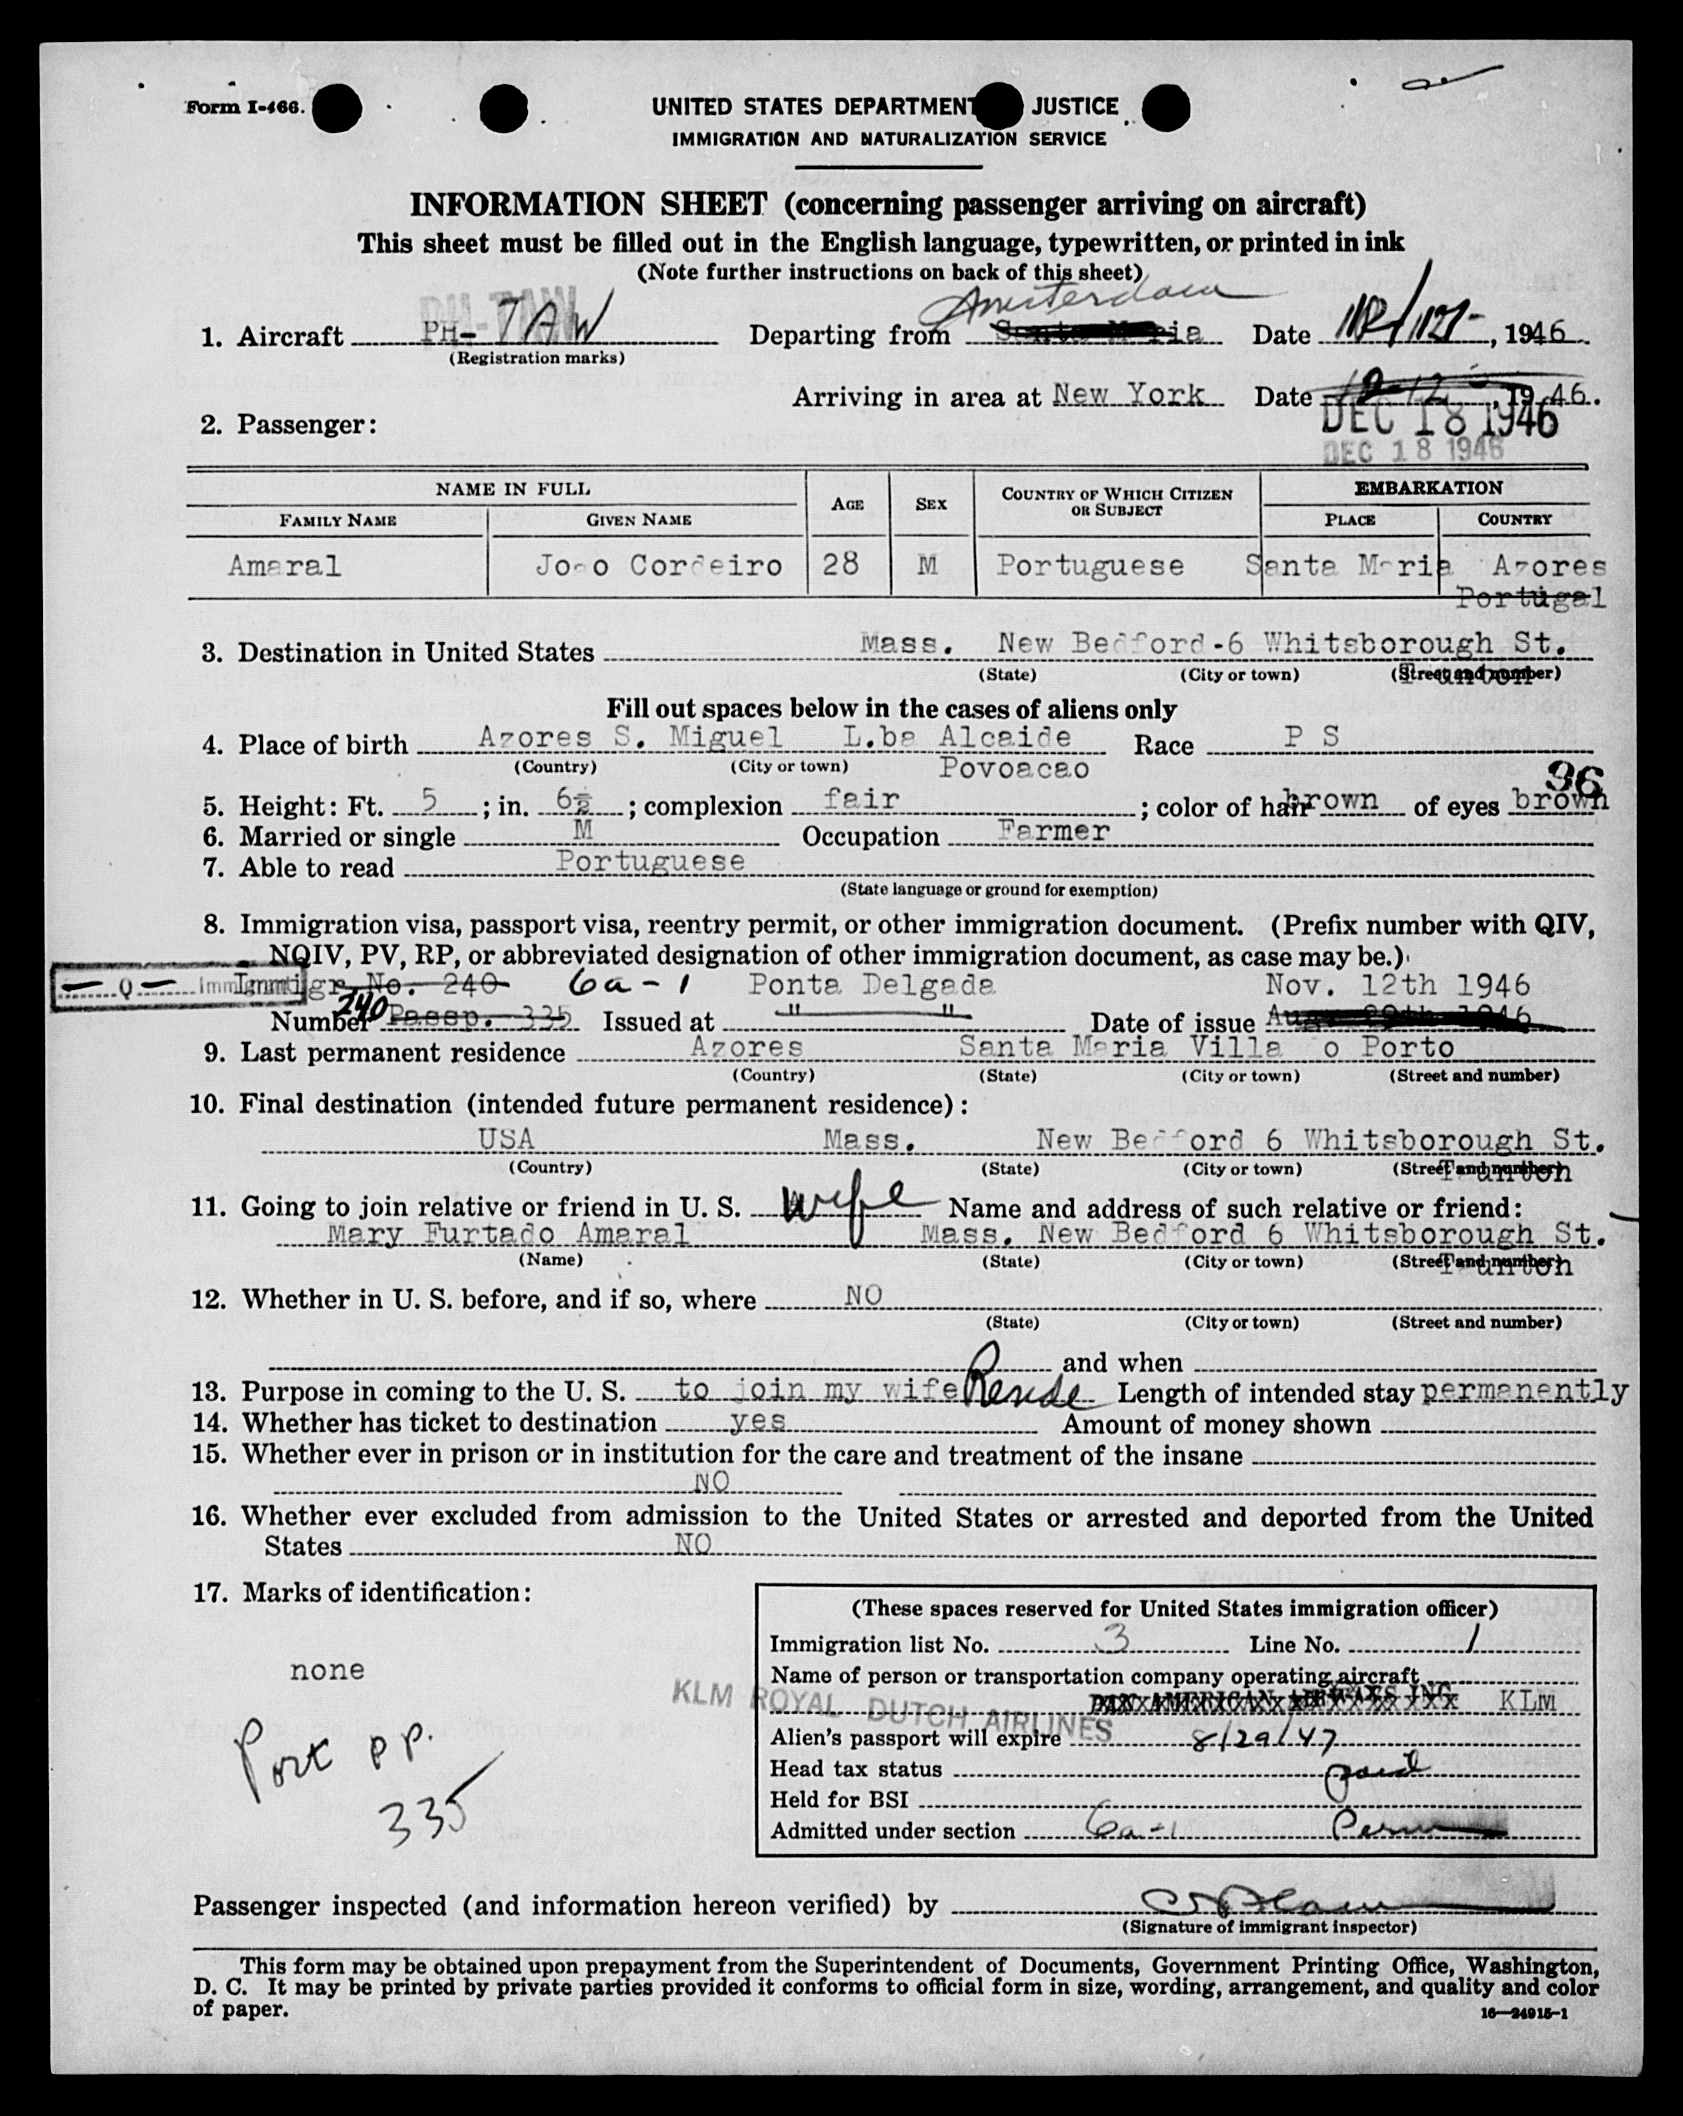 Form I-466.
UNITED STATES DEPARTMENT JUSTICE
IMMIGRATION AND NATURALIZATION SERVICE
INFORMATION SHEET (concerning passenger arriving on aircraft)
This sheet must be filled out in the English language, typewritten, or printed in ink
(Note further instructions on back of this sheet)
Amsterdam
PH-TAW
1. Aircraft PH-TAW Departing from Santa Maria Date , 1946.
(Registration marks)
Arriving in area at New York Date , 1946.
2. Passenger:
DEC 18 1946
DEC 18 1946
NAME IN FULL AGE SEX COUNTRY OF WHICH CITIZEN OR SUBJECT EMBARKATION
FAMILY NAME GIVEN NAME PLACE COUNTRY
Amaral Joao Cordeiro 28 M Portuguese Santa Maria Azores
Portugal
3. Destination in United States Mass. New Bedford-6 Whitsborough St.
(State) (City or town) (Street and number)
Taunton
Fill out spaces below in the cases of aliens only
4. Place of birth Azores S. Miguel L.ba Alcaide Race P S
(Country) (City or town) Povoacao
96
5. Height: Ft. 5 ; in. 6½ ; complexion fair ; color of hair brown of eyes brown
6. Married or single M Occupation Farmer
7. Able to read Portuguese
(State language or ground for exemption)
8. Immigration visa, passport visa, reentry permit, or other immigration document. (Prefix number with QIV,
NQIV, PV, RP, or abbreviated designation of other immigration document, as case may be.)
Q Immigr. No. 240 6a-1 Ponta Delgada Nov. 12th 1946
240
Number Passp. 335 Issued at " " Date of issue Aug. 29th 1946
9. Last permanent residence Azores Santa Maria Villa o Porto
(Country) (State) (City or town) (Street and number)
10. Final destination (intended future permanent residence):
USA Mass. New Bedford 6 Whitsborough St.
(Country) (State) (City or town) (Street and number)
Taunton
11. Going to join relative or friend in U. S. wife Name and address of such relative or friend:
Mary Furtado Amaral Mass. New Bedford 6 Whitsborough St.
(Name) (State) (City or town) (Street and number)
Taunton
12. Whether in U. S. before, and if so, where NO
(State) (City or town) (Street and number)
and when
13. Purpose in coming to the U. S. to join my wife Reside Length of intended stay permanently
14. Whether has ticket to destination yes Amount of money shown
15. Whether ever in prison or in institution for the care and treatment of the insane
NO
16. Whether ever excluded from admission to the United States or arrested and deported from the United
States NO
17. Marks of identification:
none
Port pp.
335
(These spaces reserved for United States immigration officer)
Immigration list No. 3 Line No. 1
Name of person or transportation company operating aircraft
PAN AMERICAN AIRWAYS INC KLM
KLM ROYAL DUTCH AIRLINES
Alien's passport will expire 8/29/47
Head tax status paid
Held for BSI
Admitted under section 6a-1 Perm
Passenger inspected (and information hereon verified) by
(Signature of immigrant inspector)
This form may be obtained upon prepayment from the Superintendent of Documents, Government Printing Office, Washington,
D. C. It may be printed by private parties provided it conforms to official form in size, wording, arrangement, and quality and color
of paper.
16—24915-1